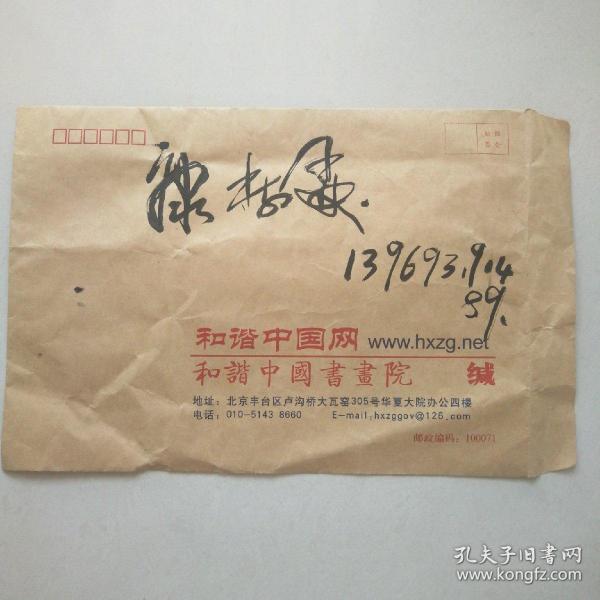 贴邮
票处
139693.9.14
89.
和谐中国网 www.hxzg.net
和諧中國書畫院 缄
地址：北京丰台区卢沟桥大瓦窑305号华夏大院办公四楼
电话：010-5143 8660 E-mail:hxzggov@126.com
邮政编码：100071
孔夫子旧书网
www.kongfz.com